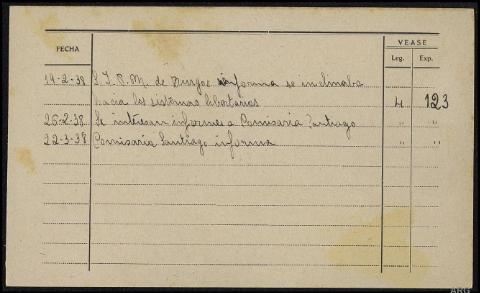 VEASE
FECHA Leg. Exp.
19-2-38 S.I.P.M. de Burgos informa se inclinaba
hacia los sistemas libertarios 4 123
26-2-38 Se interesan informes a Comisaria Santiago " "
22-3-38 Comisaria Santiago informa " "
ARG